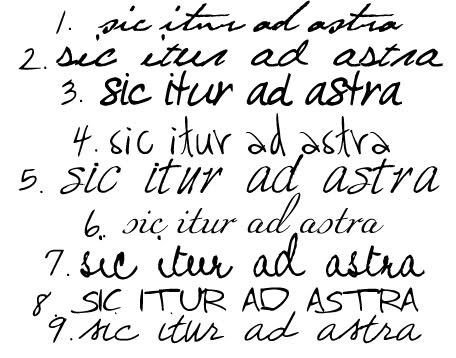 1. sic itur ad astra
2. sic itur ad astra
3. sic itur ad astra
4. sic itur ad astra
5. sic itur ad astra
6. sic itur ad astra
7. sic itur ad astra
8. SIC ITUR AD ASTRA
9. sic itur ad astra